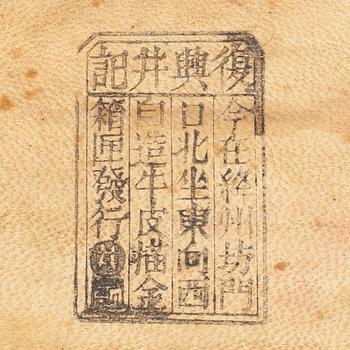 復興井記
今在絳州坊門
口北坐東向西
自造牛皮描金
箱匣發行